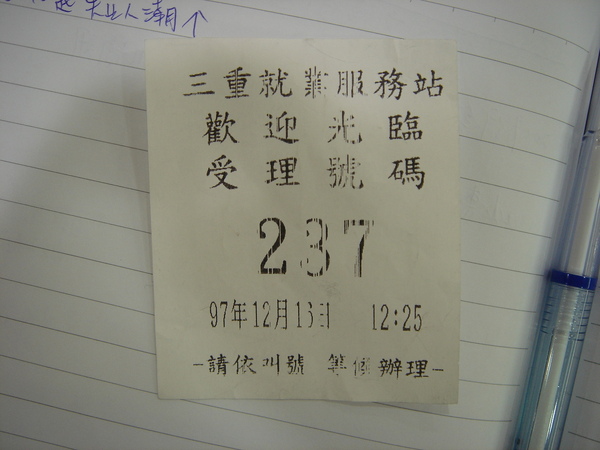 失业人潮↑
三重就業服務站
歡迎光臨
受理號碼
237
97年12月16日 12:25
-請依叫號 等候辦理-